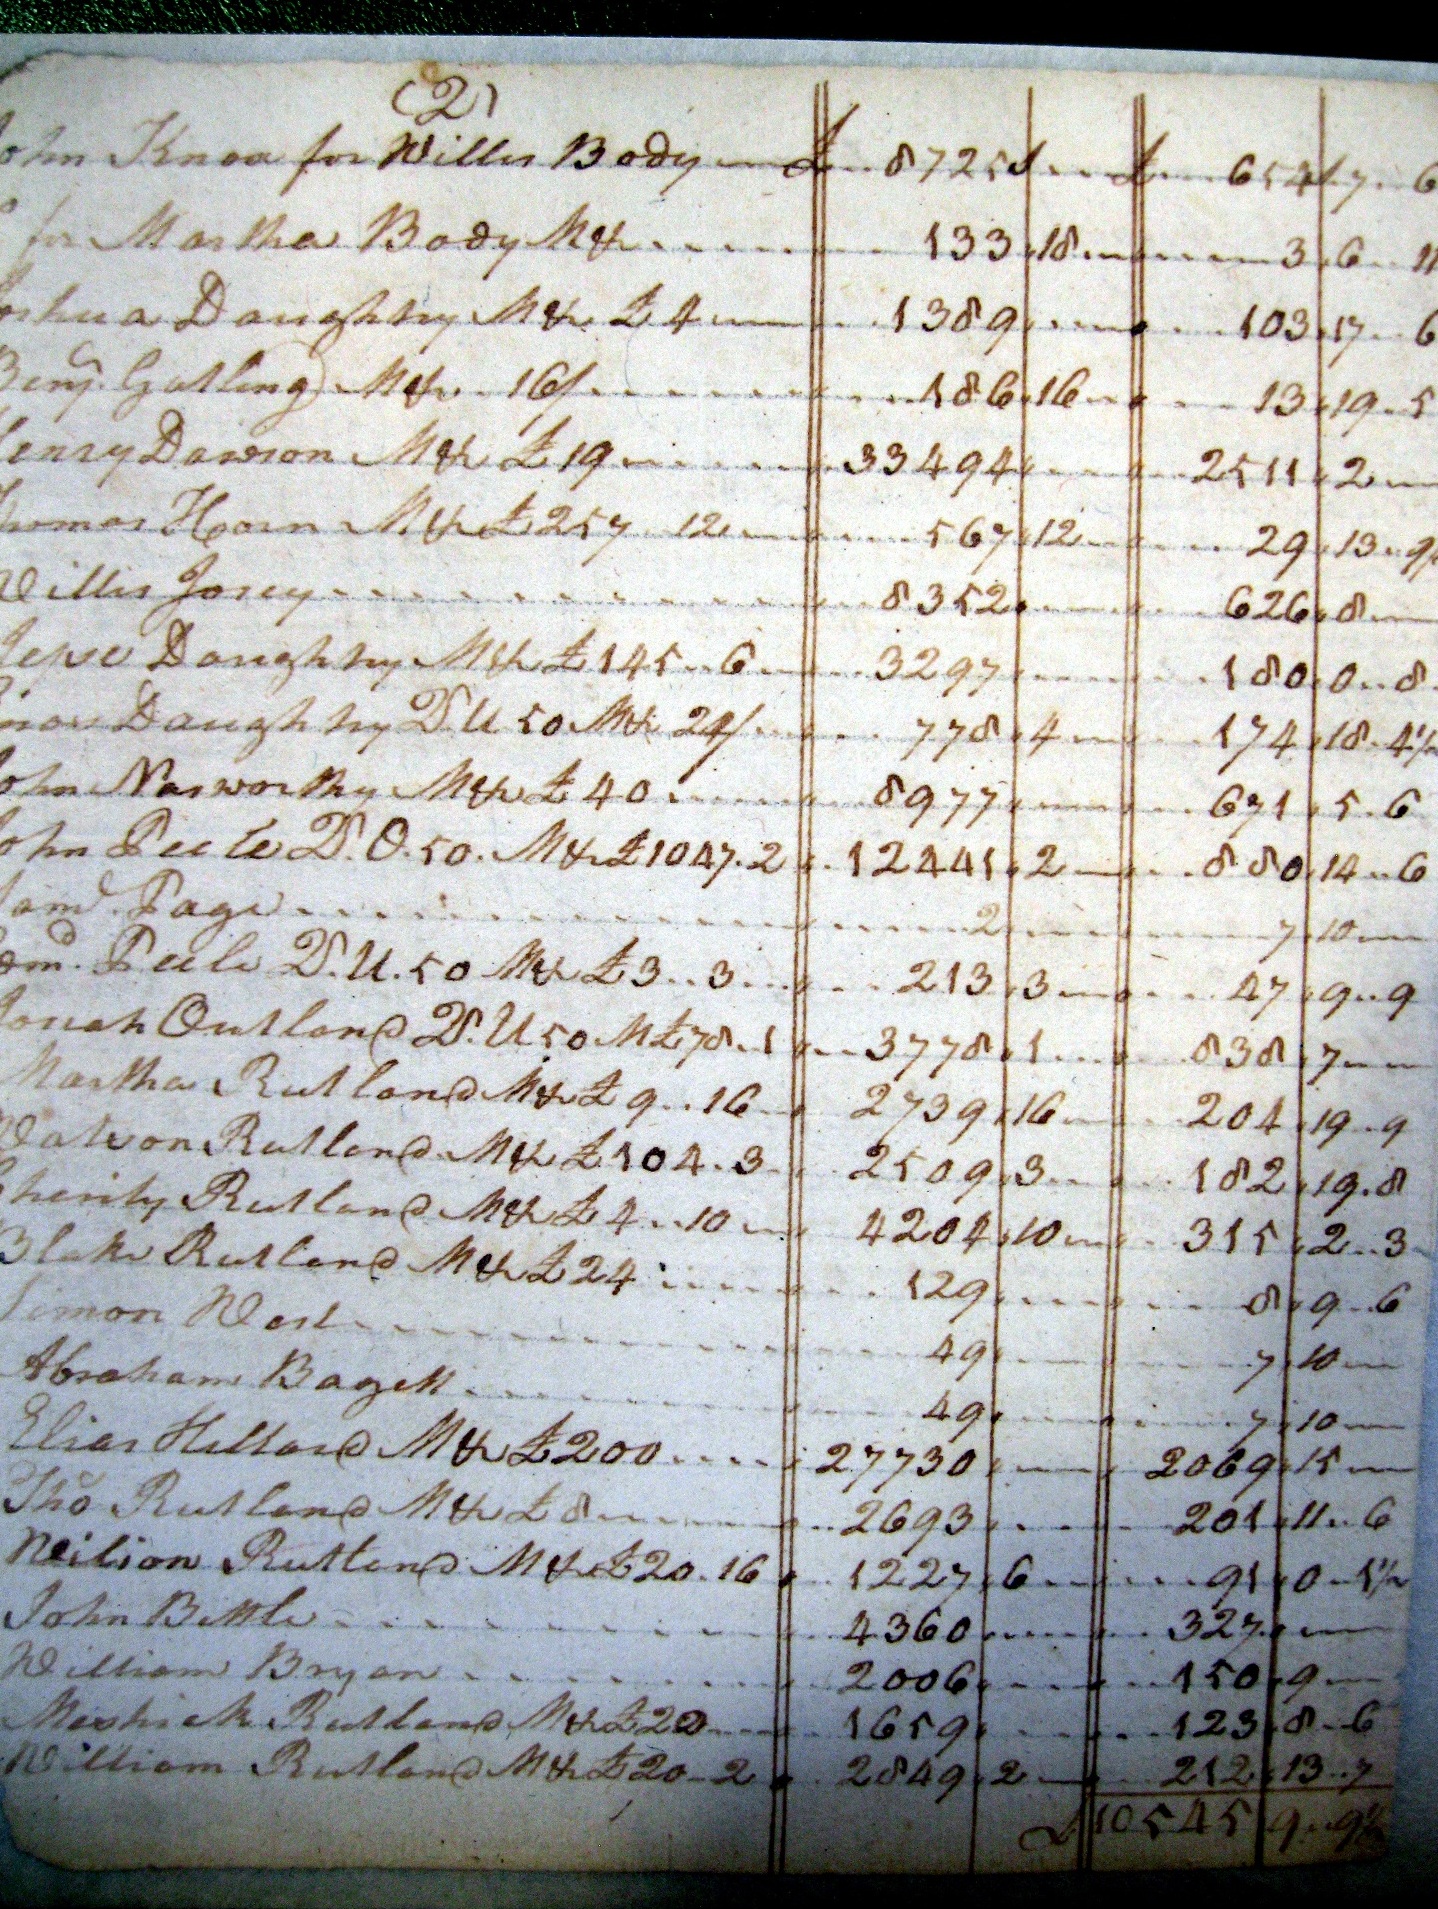 (2)
ohn Knox for Willis Body £ 8725 £ 654 7 6
for Martha Body M&c 133 18 3 6 11
oshua Daughtry M&c £4 1389 103 17 6
Benj. Gatling M&c 16/ 186 16 13 19 5
Henry Dawson M&c £19 33494 2511 2
homas Horn M&c £257 12 567 12 29 13 9
Willis Josey 8352 626 8
Jesse Daughtry M&c £145 6 3297 180 0 8
Daughtry D.U 50 M&c 24/ 778 4 174 18 4½
ohn Nasworthy M&c £40 8977 671 5 6
ohn Peele D.O. 50. M&c £1047.2 12441 2 880 14 6
Page 2 7 10
Peele D.U. 50 M&c £3 3 213 3 47 9 9
Josiah Outland D.U 50 M £78 1 3778 1 838 7
Martha Rutland M&c £9 16 2739 16 204 19 9
Watson Rutland M&c £104.3 2509 3 182 19 8
Charity Rutland M&c £4 10 4204 10 315 2 3
Blake Rutland M&c £24 129 8 9 6
Simon West 49 7 10
Abraham Bagett 49 7 10
Elias Hilliard M&c £200 27730 2069 15
Tho Rutland M&c £8 2693 201 11 6
Rutland M&c £20.16 1227 6 91 0 1½
John Bittle 4360 327
William Bryan 2006 150 9
Meshick Rutland M&c £20 1659 123 8 6
William Rutland M&c £20 2 2849 2 212 13 7
£10545 9 9½